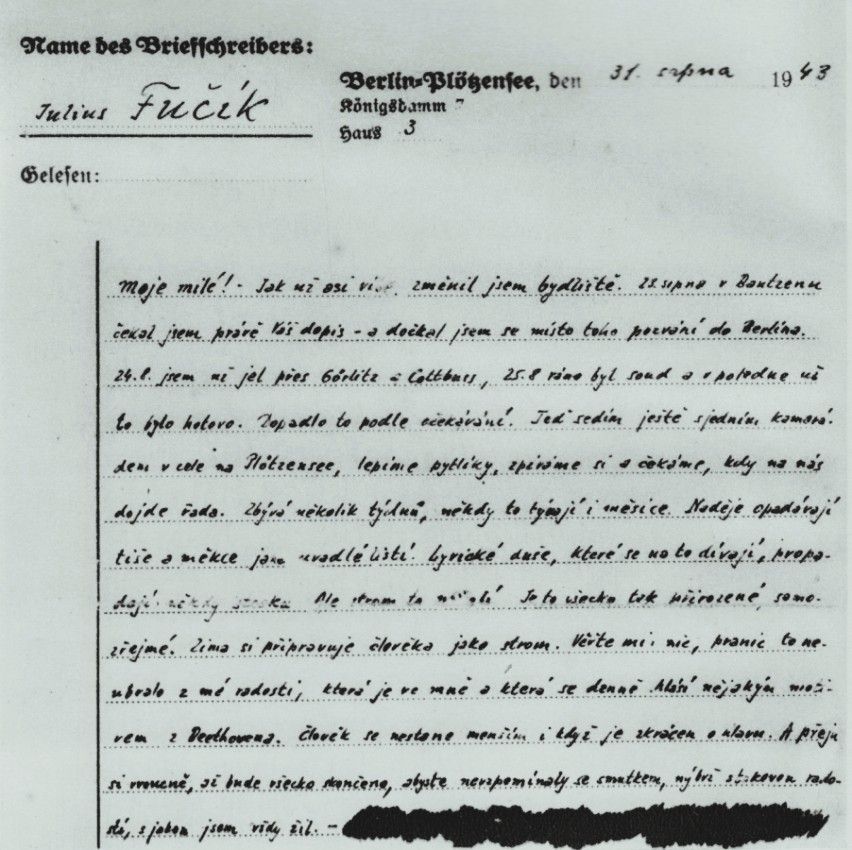 Name des Briefschreibers:
Julius Fučík
Berlin-Plötzensee, den 31. srpna 1943
Königsdamm 7
Haus 3
Gelesen:
Moje milé! - Jak už asi víte, změnil jsem bydliště. 23. srpna v Bautzenu
čekal jsem právě Váš dopis - a dočkal jsem se místo toho pozvání do Berlína.
24.8. jsem už jel přes Görlitz a Cottbus, 25.8 ráno byl soud a v poledne už
to bylo hotovo. Dopadlo to podle očekávání. Teď sedím ještě s jedním kamará-
dem v cele na Plötzensee, lepíme pytlíky, zpíváme si a čekáme, kdy na nás
dojde řada. Zbývá několik týdnů, někdy to trvají i měsíce. Naděje opadávají
tiše a měkce jako uvadlé listí. Lyrické duše, které se na to dívají, propa-
dají někdy stesku. Ale strom to nebolí. Je to všecko tak přirozené, samo-
zřejmé. Zima si připravuje člověka jako strom. Věřte mi: nic, pranic to ne-
ubralo z mé radosti, která je ve mně a která se denně hlásí nějakým moti-
vem z Beethovena. Člověk se nestane menším i když je zkrácen o hlavu. A přeju
si vroucně, až bude všecko skončeno, abyste nevzpomínaly se smutkem, nýbrž s takovou rado-
stí, s jakou jsem vždy žil. -